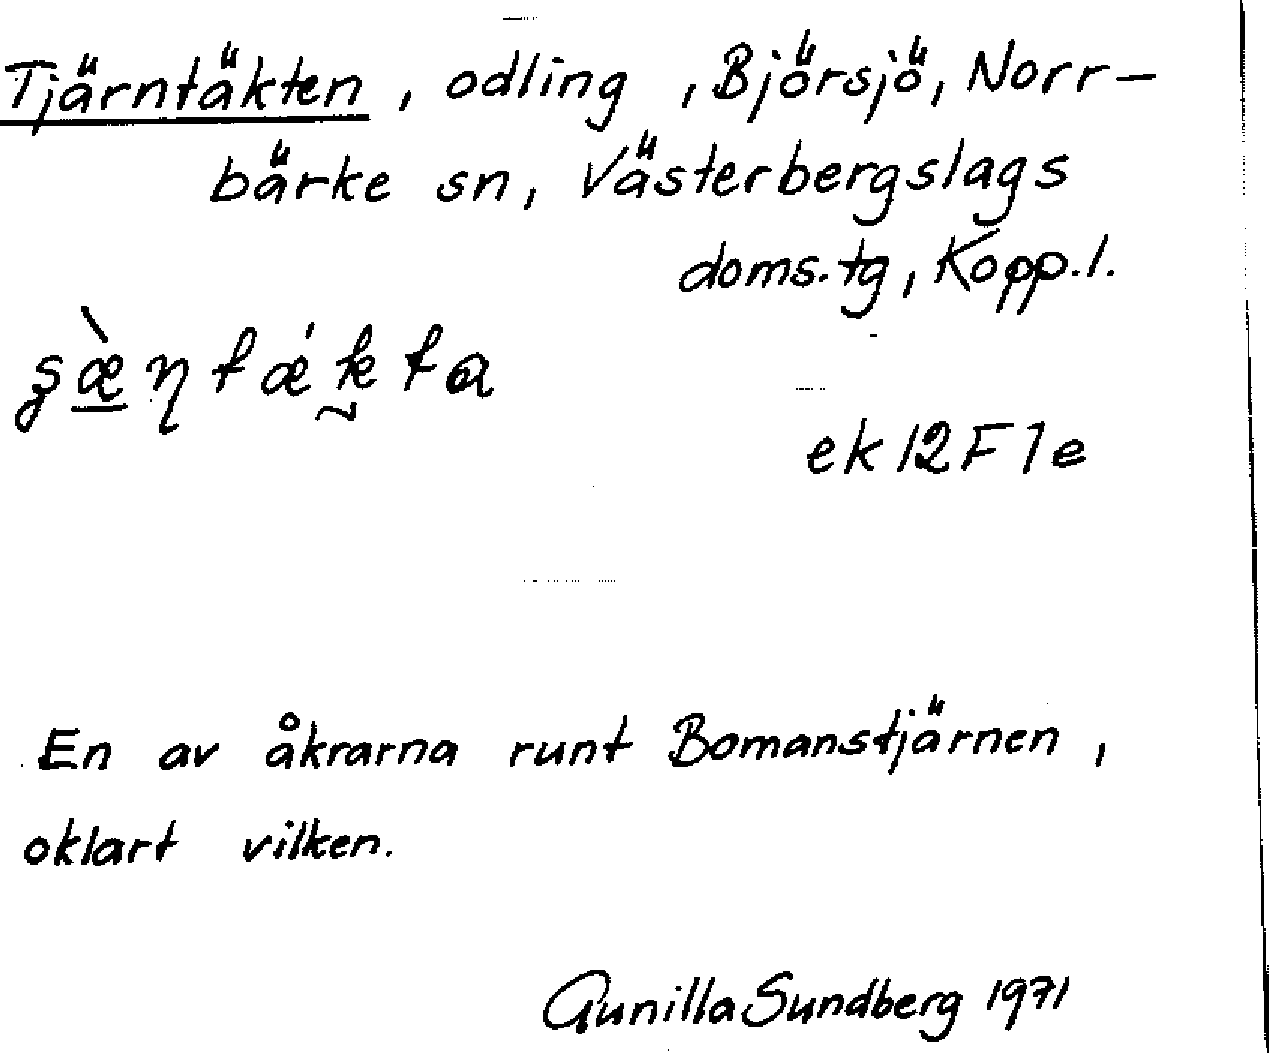 Tjärntäkten, odling, Björsjö, Norr-
bärke sn, Västerbergslags
doms.tg, Kopp.l.
ek 12F1e
En av åkrarna runt Bomanstjärnen,
oklart vilken.
Gunilla Sundberg 1971